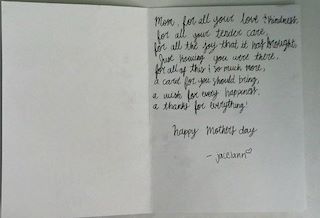 Mom, for all your love & kindness
for all your tender care,
for all the joy that it has brought,
Just knowing you were there,
for all of this & so much more,
a card for you should bring,
a wish for every happiness,
a thanks for everything!
happy Mothers day
- jaclann♡